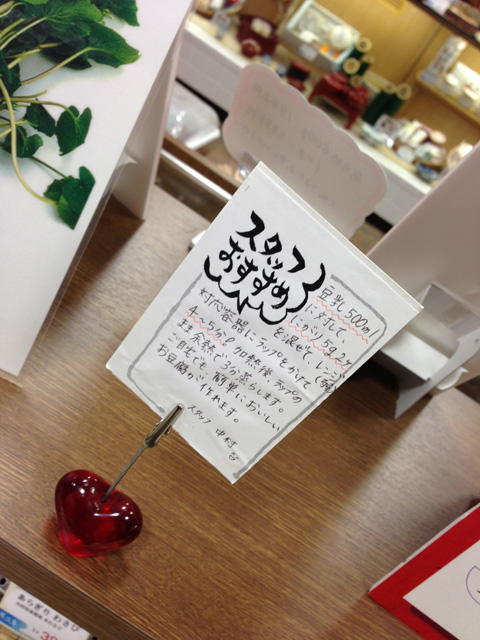 スタッフ
おすすめ
豆乳500mlに
に対して、
にがり5g2ヶ
を混ぜて、レンジ
対応容器にラップをかけて
4〜5分 加熱後、ラップの
まま余熱で3分蒸らします。
ご自宅でも簡単においしい
お豆腐が作れます。
スタッフ 中村
あらぎり わさび